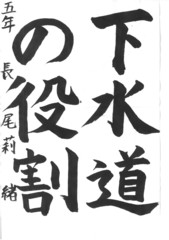 下水道
の役割
五年 長尾莉緒